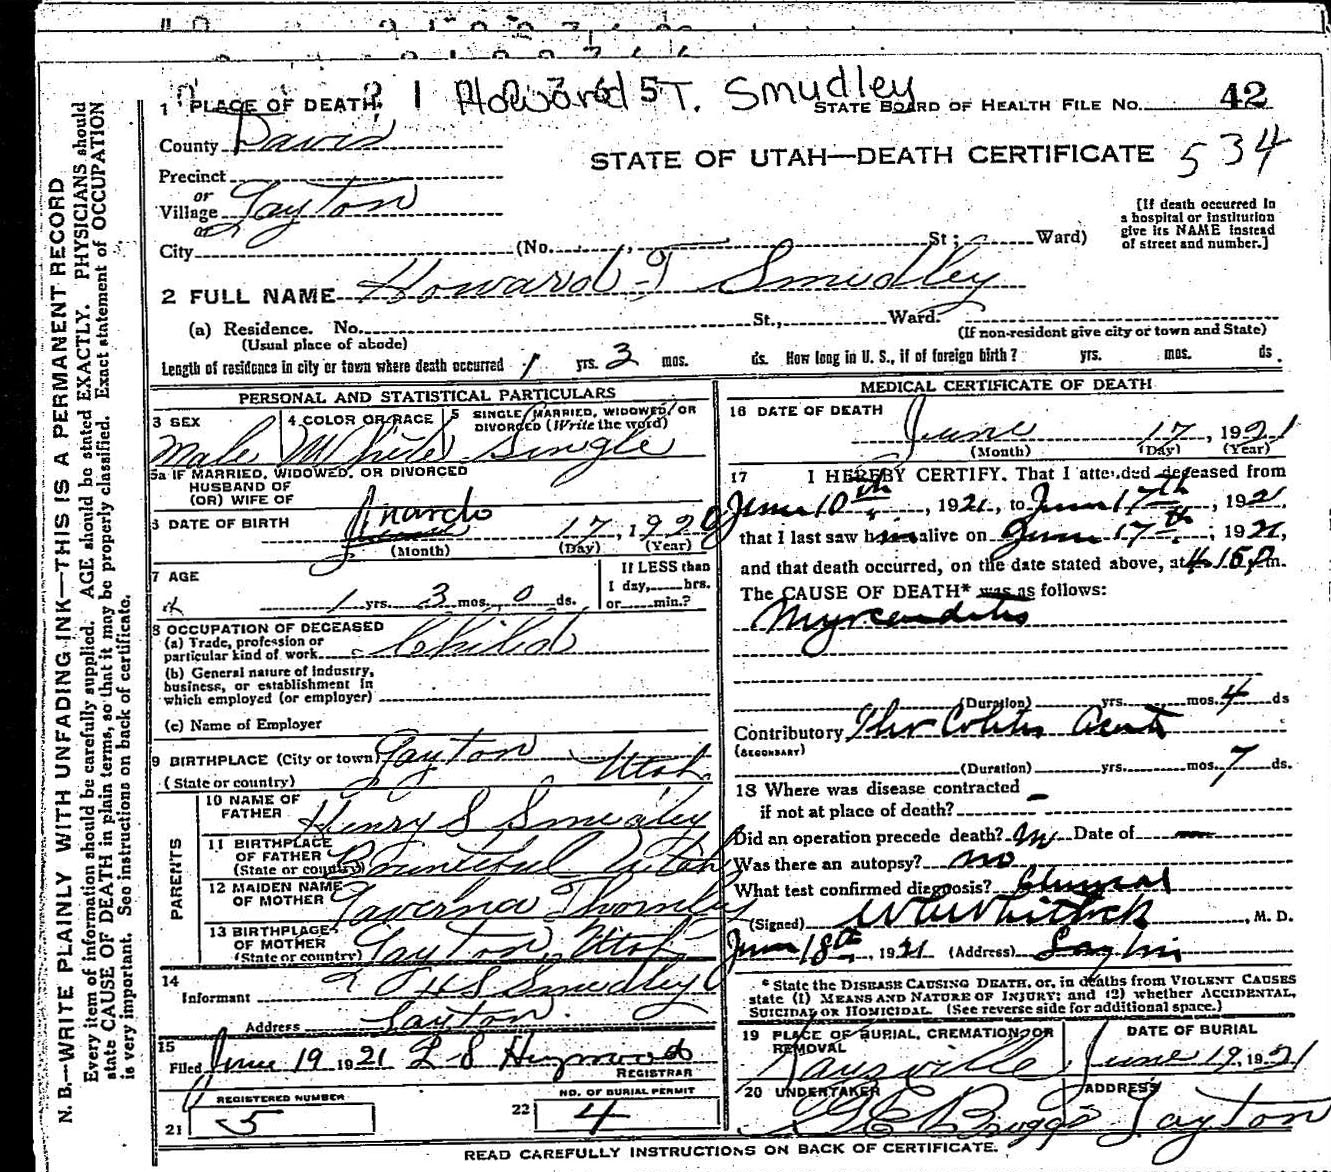 Howard T. Smudley
1 PLACE OF DEATH
STATE BOARD OF HEALTH FILE NO. 42
County Davis
STATE OF UTAH—DEATH CERTIFICATE 534
Precinct
or
Village Layton
or
[If death occurred in
a hospital or institution
give its NAME instead
of street and number.]
City (No. St; Ward)
2 FULL NAME Howard T Smudley
(a) Residence. No. St., Ward.
(Usual place of abode) (If non-resident give city or town and State)
Length of residence in city or town where death occurred 1 yrs. 3 mos. ds. How long in U. S., if of foreign birth? yrs. mos. ds.
PERSONAL AND STATISTICAL PARTICULARS
3 SEX 4 COLOR OR RACE 5 SINGLE, MARRIED, WIDOWED, OR
DIVORCED (Write the word)
Male White Single
5a IF MARRIED, WIDOWED, OR DIVORCED
HUSBAND OF
(OR) WIFE OF
6 DATE OF BIRTH March 17, 1920
(Month) (Day) (Year)
7 AGE If LESS than
1 day, hrs.
1 yrs. 3 mos. 0 ds. or min.?
8 OCCUPATION OF DECEASED
(a) Trade, profession or
particular kind of work Child
(b) General nature of industry,
business, or establishment in
which employed (or employer)
(c) Name of Employer
9 BIRTHPLACE (City or town) Layton Utah
(State or country)
PARENTS
10 NAME OF
FATHER Henry S Smedley
11 BIRTHPLACE
OF FATHER Bountiful Utah
(State or country)
12 MAIDEN NAME
OF MOTHER Laverna Thornley
13 BIRTHPLACE
OF MOTHER Layton, Utah
(State or country)
14
Informant H S Smudley
Address Layton
15
Filed June 19 1921 L S Heywood
REGISTRAR
REGISTERED NUMBER
21 5
NO. OF BURIAL PERMIT
22 4
MEDICAL CERTIFICATE OF DEATH
16 DATE OF DEATH
June 17, 1921
(Month) (Day) (Year)
17 I HEREBY CERTIFY, That I attended deceased from
June 10th, 1921, to June 17th, 1921
that I last saw him alive on June 17th, 1921,
and that death occurred, on the date stated above, at 4 15 P.m.
The CAUSE OF DEATH* was as follows:
Myocarditis
(Duration) yrs. mos. 4 ds
Contributory Ileo Colitis Acute
(SECONDARY)
(Duration) yrs. mos. 7 ds.
18 Where was disease contracted
if not at place of death?
Did an operation precede death? No Date of
Was there an autopsy? no
What test confirmed diagnosis? Clinical
(Signed) Whitlock, M. D.
June 18th, 1921 (Address) Layton
* State the DISEASE CAUSING DEATH, or, in deaths from VIOLENT CAUSES
state (1) MEANS AND NATURE OF INJURY; and (2) whether ACCIDENTAL,
SUICIDAL OR HOMICIDAL. (See reverse side for additional space.)
19 PLACE OF BURIAL, CREMATION, OR
REMOVAL
DATE OF BURIAL
Kaysville June 19, 1921
20 UNDERTAKER ADDRESS
Briggs Layton
READ CAREFULLY INSTRUCTIONS ON BACK OF CERTIFICATE.
N. B.—WRITE PLAINLY WITH UNFADING INK—THIS IS A PERMANENT RECORD
Every item of information should be carefully supplied. AGE should be stated EXACTLY. PHYSICIANS should
state CAUSE OF DEATH in plain terms, so that it may be properly classified. Exact statement of OCCUPATION
is very important. See instructions on back of certificate.